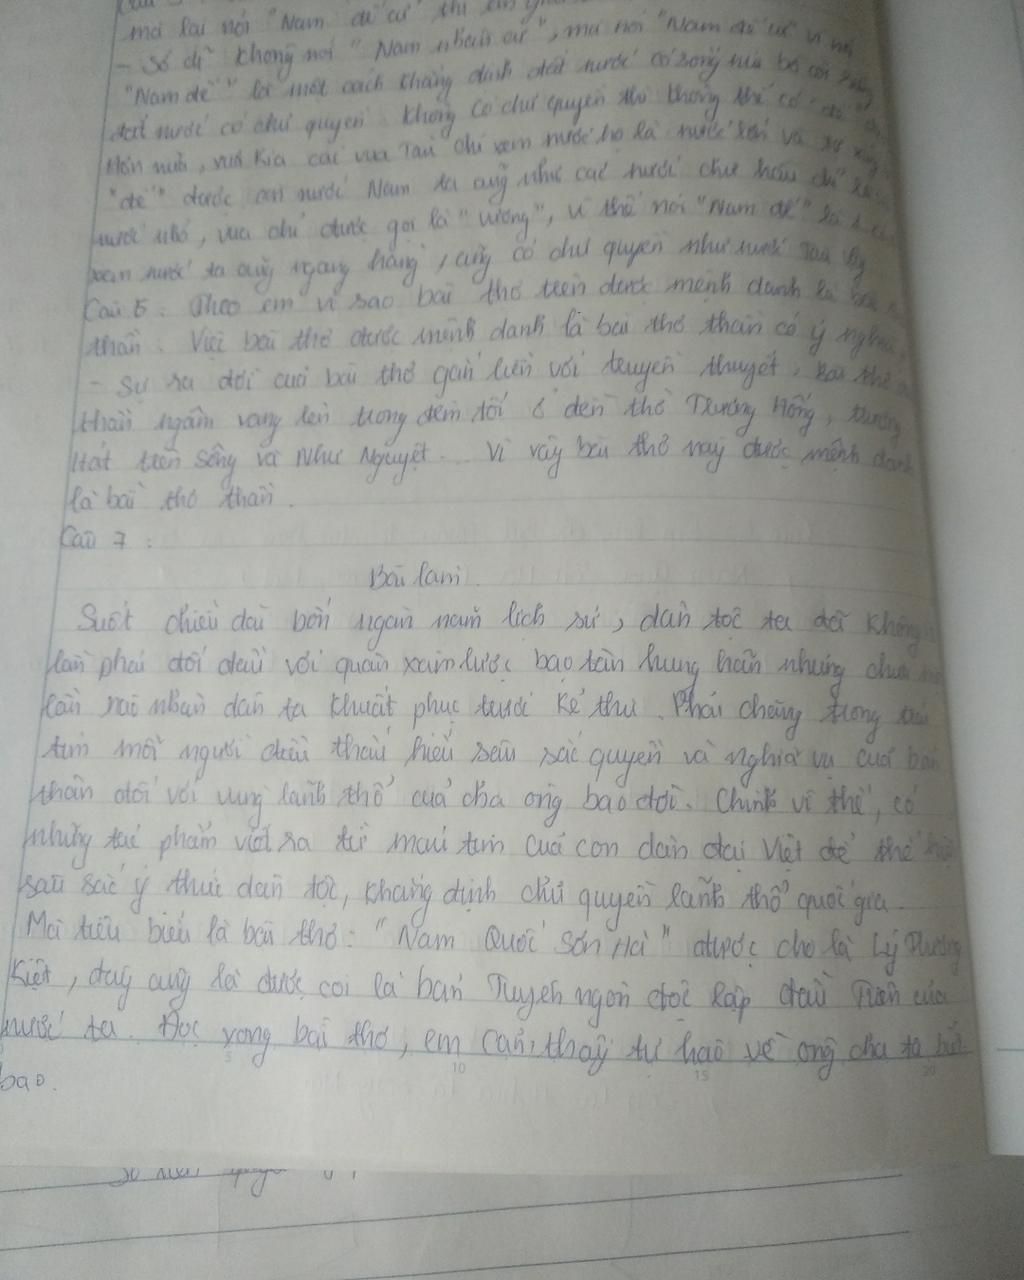 mà lại nói "Nam đế cư" thì
- Sở dĩ không nói "Nam nhân cư", mà nói "Nam đế cư" vì nói
"Nam đế" là một cách khẳng định đất nước có sông núi bờ cõi
đất nước có chủ quyền. Không có chủ quyền thì không thể có "đế"
Hơn nữa, xưa kia các vua Tàu chỉ xem nước họ là nước lớn và
"đế" được còn nước Nam ta cũng như các nước chư hầu chỉ là
nước nhỏ, vua chỉ được gọi là "vương", vì thế nói "Nam đế" là
xem nước ta cũng ngang hàng, cũng có chủ quyền như nước Tàu vậy
Câu 5: Theo em vì sao bài thơ trên được mệnh danh là bài
thần. Việc bài thơ được mệnh danh là bài thơ thần có ý nghĩa
- Sự ra đời của bài thơ gắn liền với truyền thuyết, bài thơ
thần ngâm vang lên trong đêm tối ở đền thờ Trương Hống, Trương
Hát trên sông và Như Nguyệt... Vì vậy bài thơ này được mệnh danh
là bài thơ thần.
Câu 7:
Bài làm.
Suốt chiều dài bốn ngàn năm lịch sử, dân tộc ta đã không
lần phải đối đầu với quân xâm lược bạo tàn hung hãn nhưng chưa
lần nào nhân dân ta khuất phục trước kẻ thù. Phải chăng trong trái
tim mỗi người đều thấu hiểu sâu sắc quyền và nghĩa vụ của bản
thân đối với vùng lãnh thổ của cha ông bao đời. Chính vì thế, có
những tác phẩm viết ra từ máu tim của con dân đại Việt để thể hiện
sâu sắc ý thức dân tộc, khẳng định chủ quyền lãnh thổ quốc gia.
Mà tiêu biểu là bài thơ: "Nam Quốc Sơn Hà" được cho là Lý Thường
Kiệt, đây cũng là được coi là bản Tuyên ngôn độc lập đầu Tiên của
nước ta. Đọc xong bài thơ, em cảm thấy tự hào về ông cha ta biết
bao.